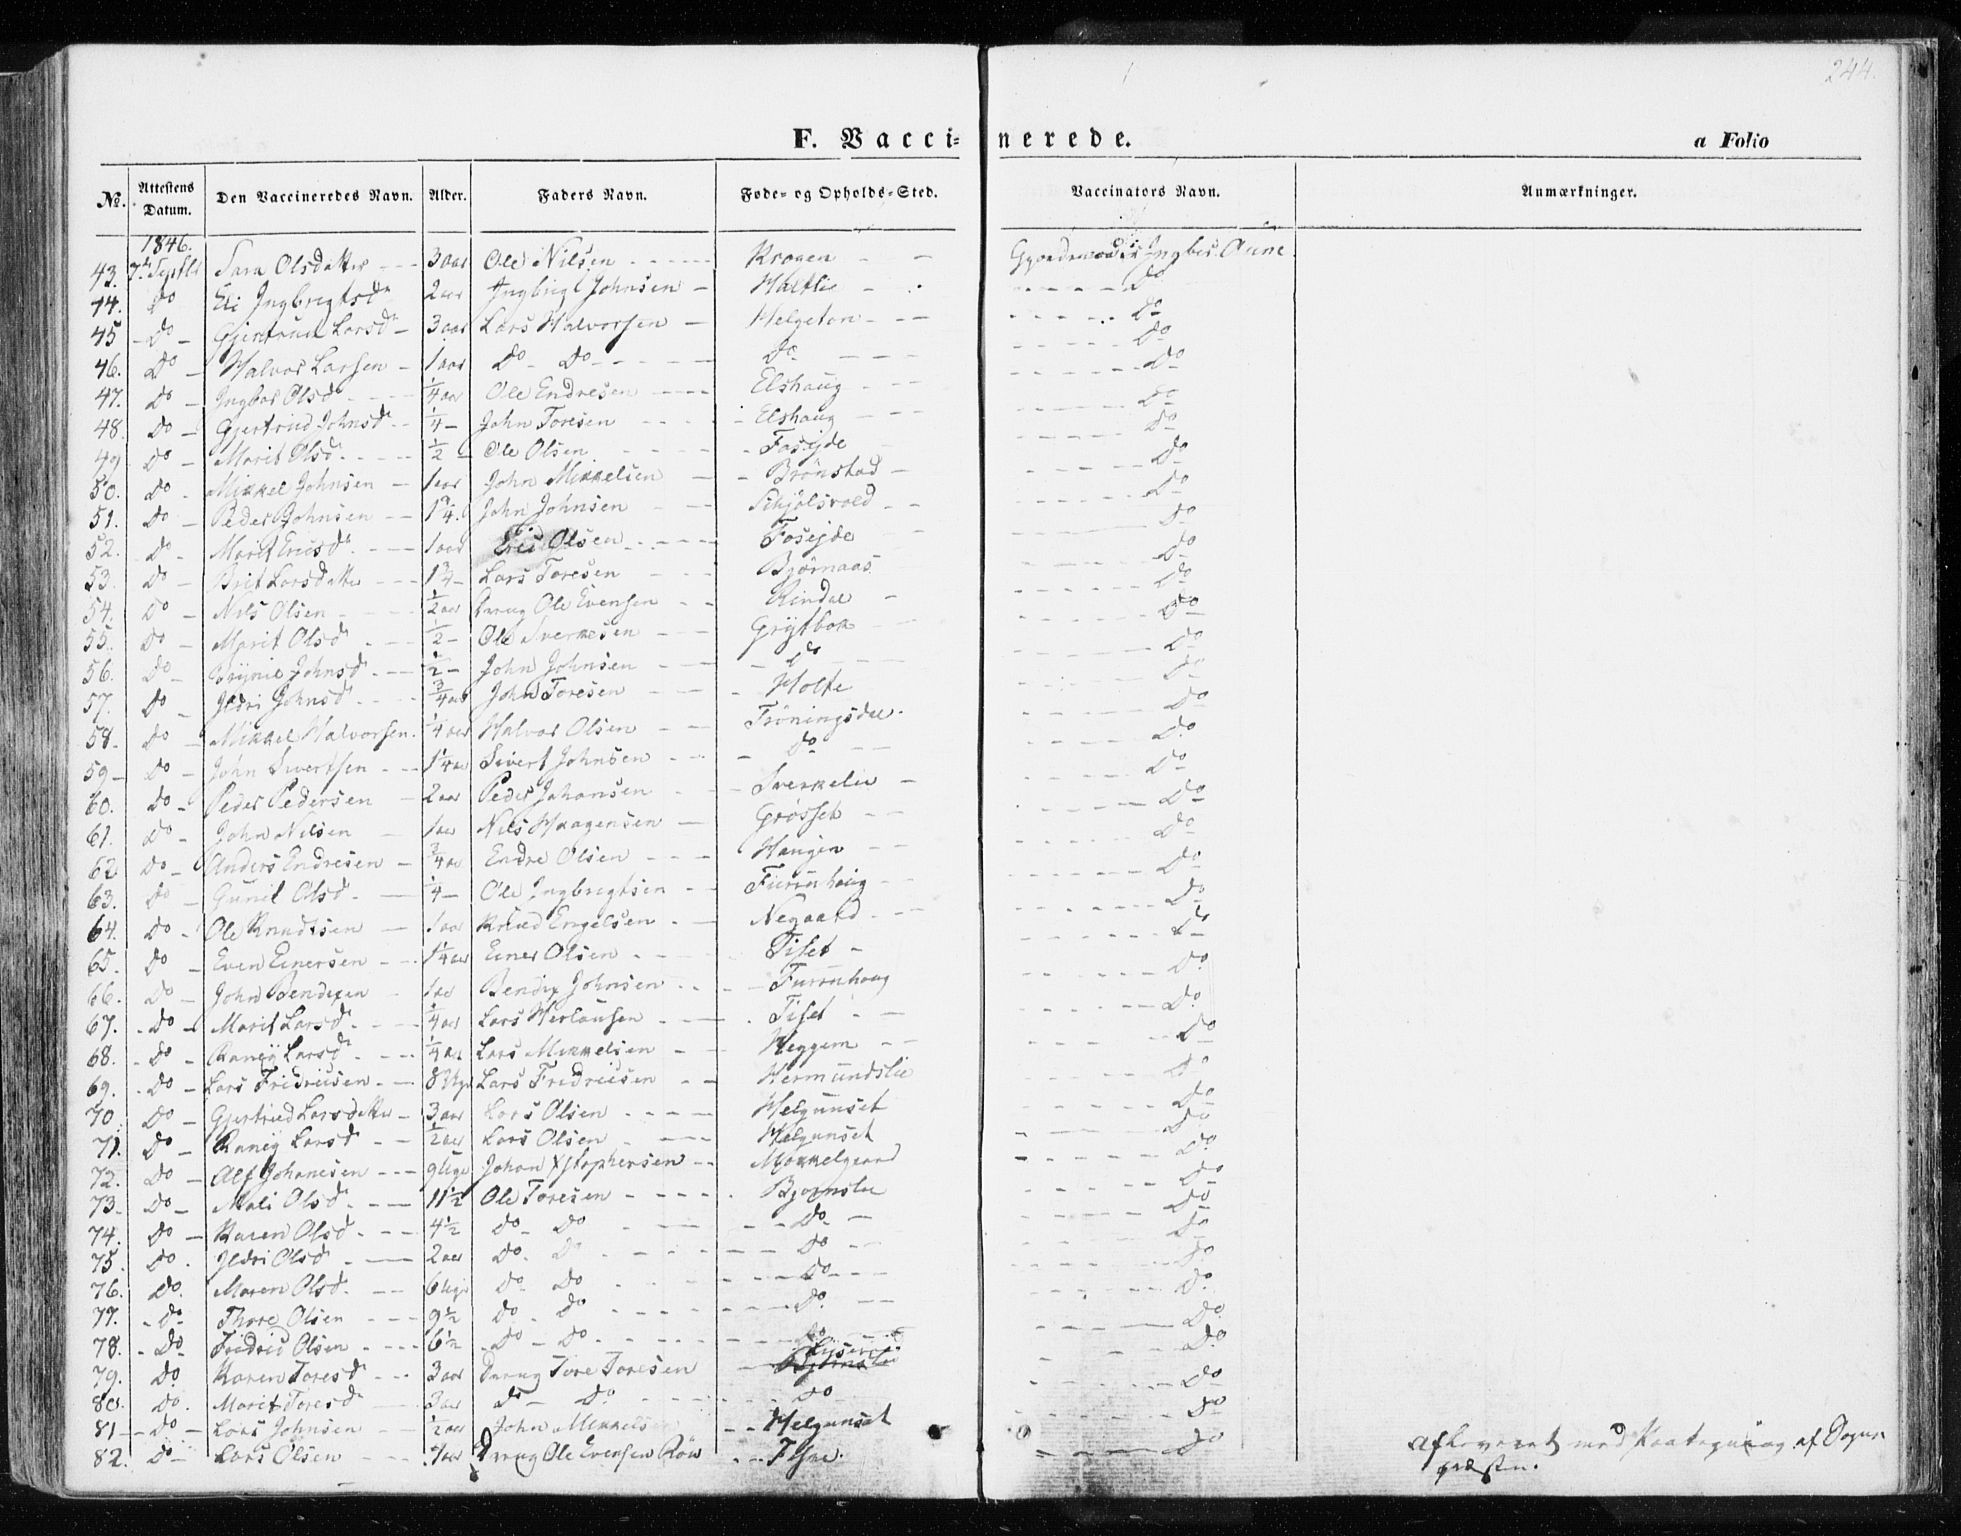 244.
F. Vaccinerede.
a Folio
No. Attestens Datum. Den Vaccineredes Navn. Alder. Faders Navn. Føde- og Opholds-Sted. Vaccinators Navn. Anmærkninger.
1846.
43. 7de Septbr Sara Olsdatter 3 aar Ole Nilsen Krogen Gjordemoder Ingbor. Aune
44. Do Eli Ingbrigtsd 2 aar Ingbrigt Johnsen Haltlie Do
45 Do Gjertrud Larsd 3 aar Lars Halvorsen Helgeton Do
46. Do Halvor Larsen 1 aar Do Do Do Do
47. Do Ingbor Olsd 1/4 aar Ole Endresen Elshaug Do
48. Do Gjertrud Johnsd 1/4 John Toresen Elshaug Do
49 Do Marit Olsd. 1/2 Ole Olsen Fosejde Do
50. Do Mikkel Johnsen 1 aar John Mikkelsen Brønstad Do
51. Do Peder Johnsen 1 3/4. John Johnsen Schjølsvold Do
52. Do Marit Ericsd. 1 aar Eric Olsen Foseide Do
53. Do Brit Larsdatter 1 3/4 Lars Toresen Bjørnaas Do
54. Do Nils Olsen 1/2 aar Ole Evensen Rindal Do
55. Do Marit Olsd 1/2 Ole Sverkesen Grytbak Do
56. Do Johnsd. 1/2 John Johnsen Do Do
57. Do Ildri Johnsd 3/4 aar John Toresen Holte Do
58. Do Mikkel Halvorsen. 1/4 aar Halvor Olsen Trøningsdal. Do
59 Do John Sivertsen 1 1/4 aar Sivert Johnsen Do Do
60. Do Peder Pedersen 2 aar Peder Johansen Sverkelie Do
61. Do John Nilsen 1 aar Nils Haagensen Grøsset Do
62 Do Anders Endresen 3/4 aar Endre Olsen Haugen Do
63. Do Gunil Olsd. 1/4 Ole Ingbrigtsen Furruhaug Do
64. Do Ole Knudtsen 1 aar Knud Engelsen Negaard Do
65. Do Even Einersen 1 1/4 aar Einer Olsen Tiset Do
66. Do John Bendixen 1 aar Bendix Johnsen Furruhaug Do
67. Do Marit Larsd 1/4 aar Lars Herlaufsen Tiset Do
68. Do Raney Larsd. 1/4 aar Lars Mikkelsen Heggem Do
69. Do Lars Fridricsen 8 Uger Lars Fredricsen Hermundslie Do
70 Do Gjertrud Larsdatter 3 aar Lars Olsen Helgunset Do
71. Do Raney Larsd 1/2 aar Lars Olsen Helgunset Do
72. Do Alf Johansen 9 Uger Johan Xstophersen Mokkelgaard Do
73. Do Mali Olsd. 11 1/2 Ole Toresen Bjørnslie Do
74. Do Karen Olsd. 4 1/2 Do Do Do Do
75. Do. Ildri Olsd. 2 aar Do. Do Do Do
76. Do. Maren Olsd. 6 Uger Do Do Do Do.
77. Do Thore Olsen 9 1/2 Do Do Do. Do.
78. Do Fridric Olsen 6 1/2 Do Do. Do Do
79. Do. Karen Toresd 3 aar Tore Toresen Bjørnslie Do
80. Do. Marit Toresd 3 aar Do Do Do Do
81 Do Lars Johnsen 1/2 aar John Mikkelsen Helgunset
82. Do Lars Olsen aar Ole Evensen Røv Do
Afleveret med Paategning af Sogne
præsten.